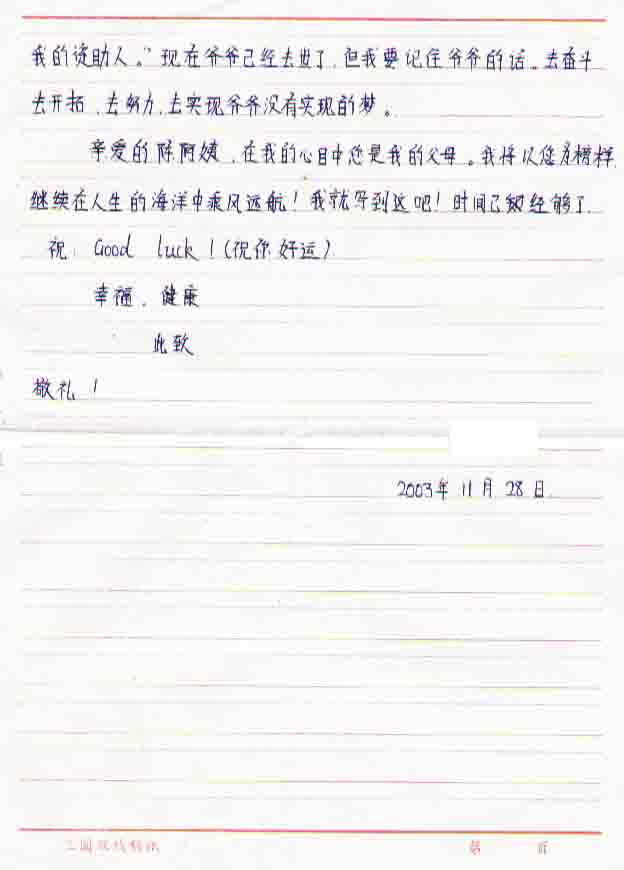 我的资助人。”现在爷爷己经去世了，但我要记住爷爷的话。去奋斗
去开拓、去努力，去实现爷爷没有实现的梦。
亲爱的陈阿姨，在我的心目中您是我的父母。我将以您为榜样，
继续在人生的海洋中乘风远航！我就写到这吧！时间己经够了
祝：Good luck！(祝你好运)
幸福、健康
此致
敬礼！
2003年11月28日.
第 页